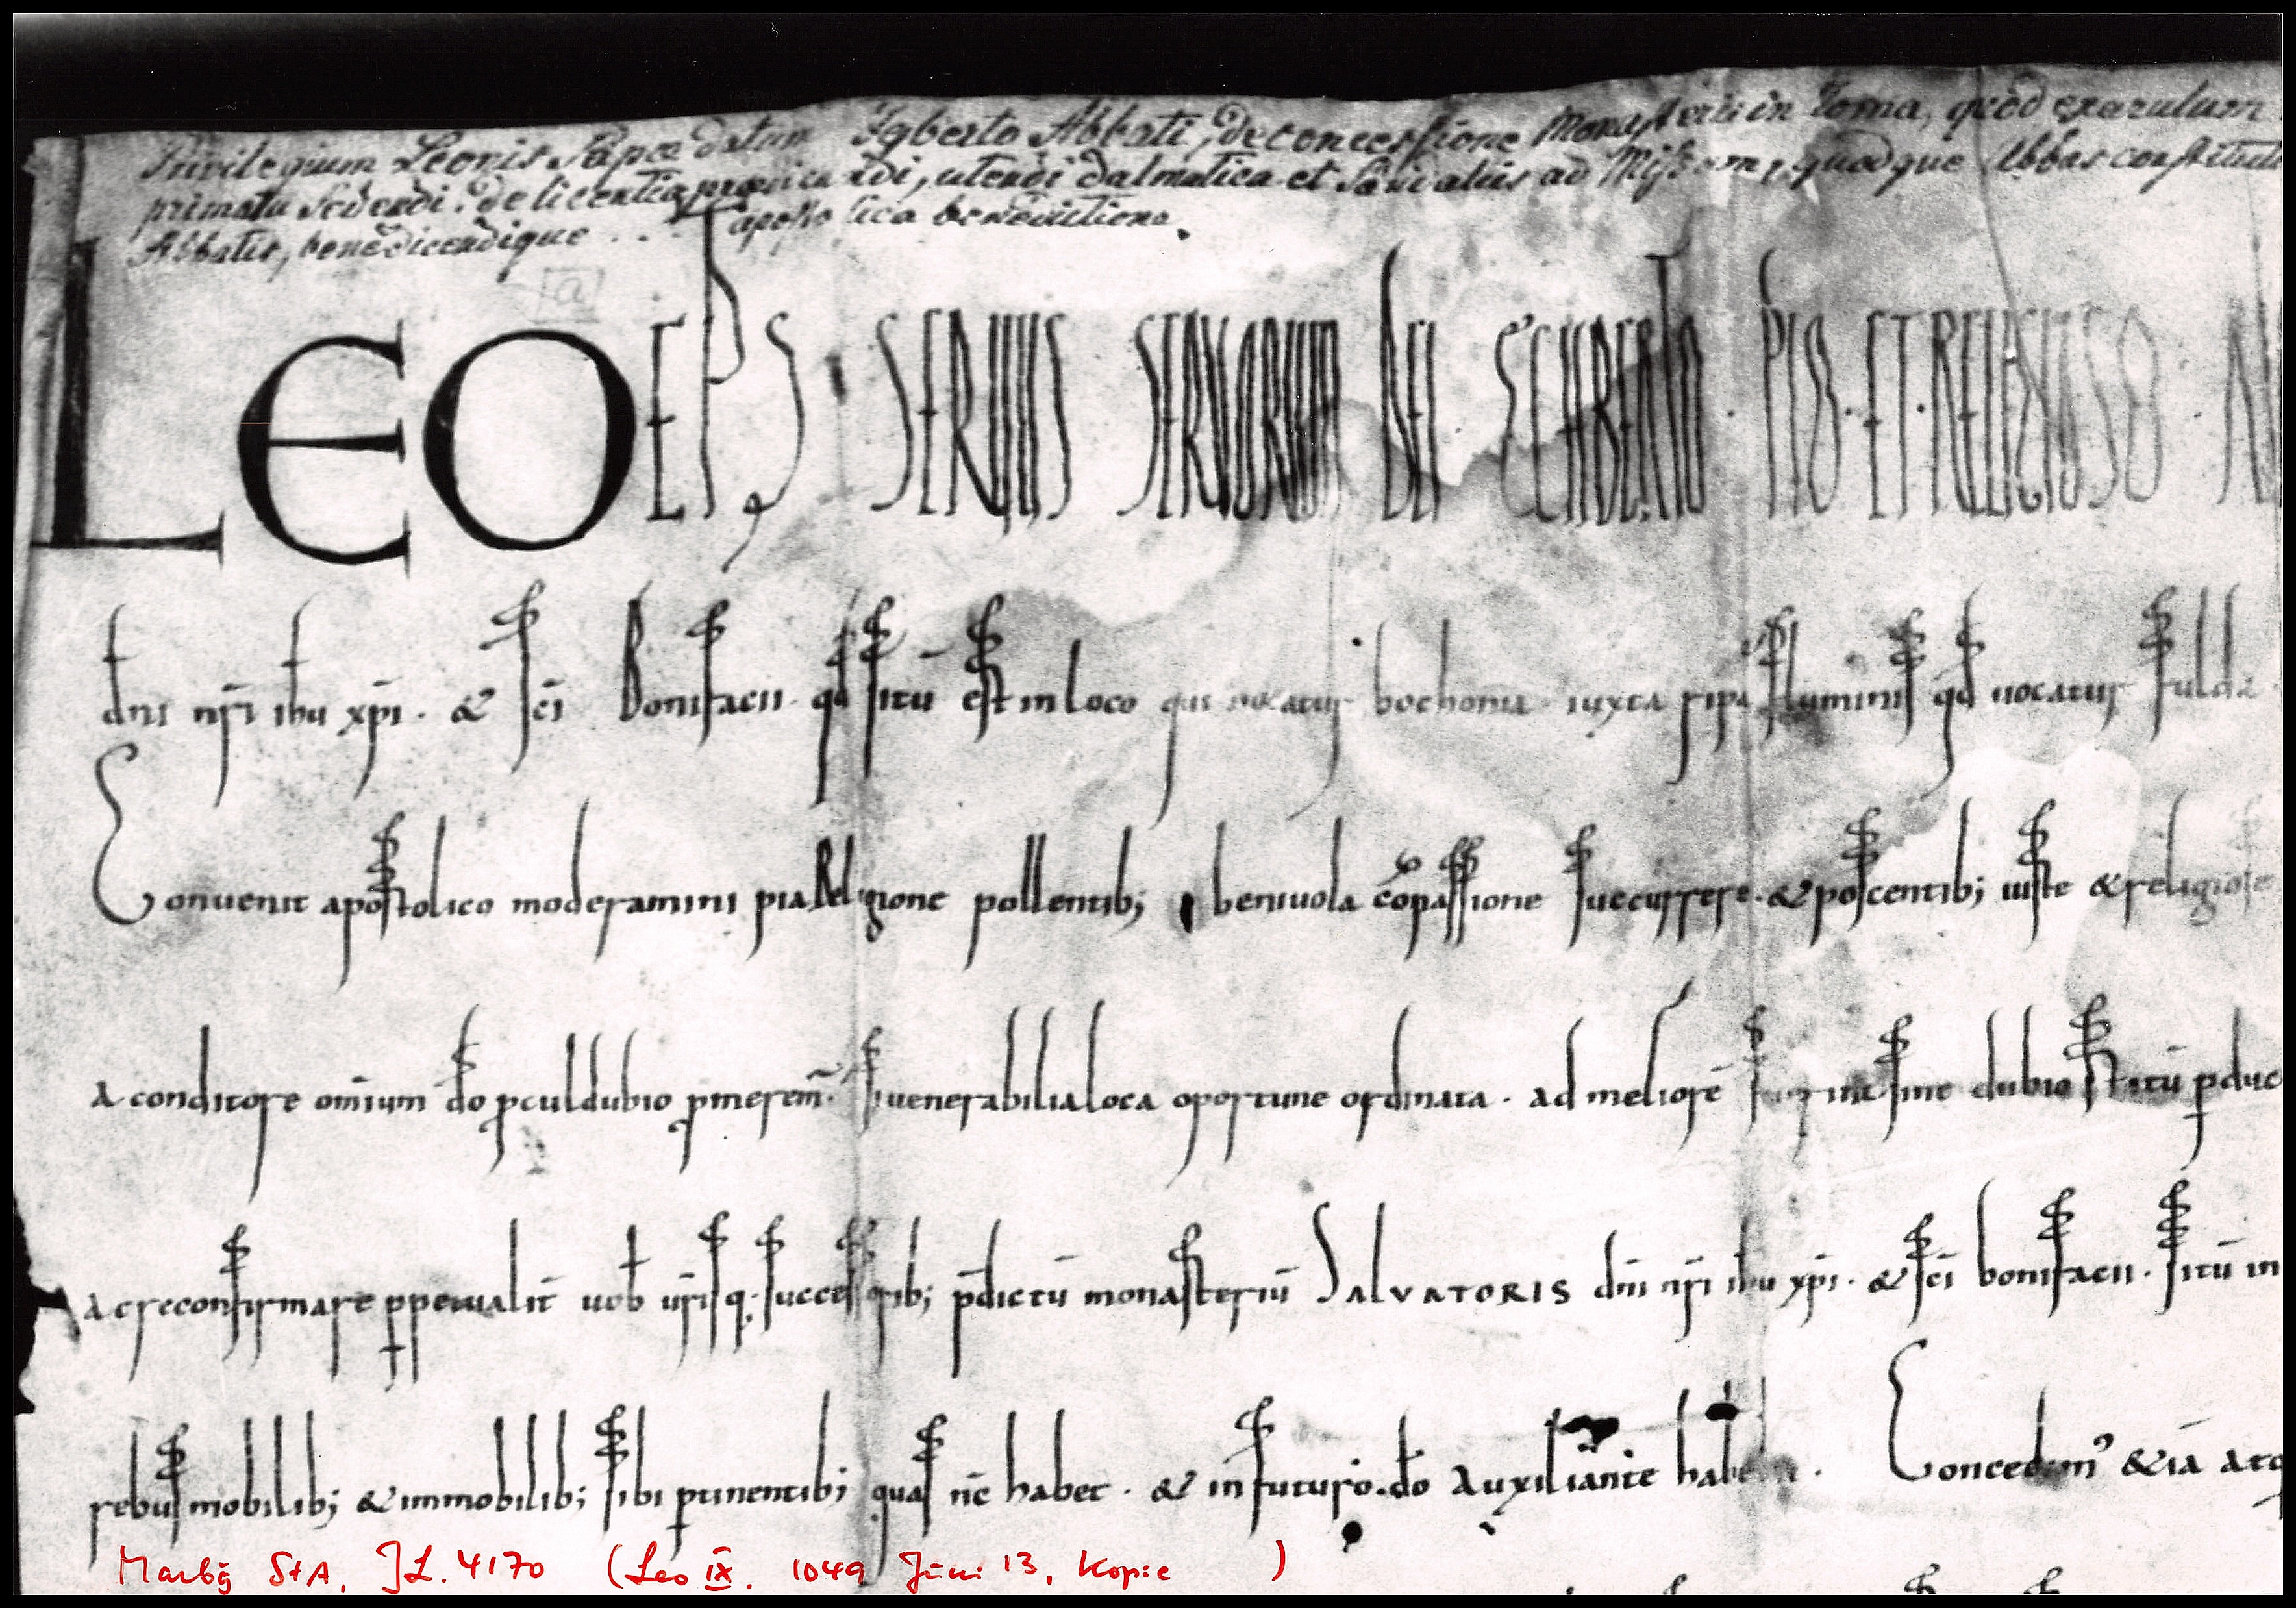 Privilegium Leonis Papæ datum Egberto Abbati, de concessione Monasterii in Roma, quod exaratum
primatu sedendi. de licentia prædicandi, utendi dalmatica et Sandaliis ad Missam, quodque Abbas constitut
Abbatis, benedicendique ... apostolica benedictione.
[a]
LEO EPS SERVUS SERVORUM DEI ECHIBERTO · PIO · ET · RELIGIOSO ·
dni nr̄i ihu xp̄i · & sc̄i Bonifacii · qd̄ sitū est in loco qui uocatur bochonia iuxta ripā fluminis qd̄ uocatur fulda
Conuenit apostolico moderamini pia Religione pollentib; beniuola cōpassione succurrere · & poscentib; iuste & religiose
a conditore omīum do pculdubio pmerem̄. Si uenerabilia loca oportune ordinata · ad meliorē sine dubio statū pduc
ac reconfirmare ppetualit uob ur̄isq; successorib; p̄dictū monasteriū SALVATORIS dn̄i nr̄i ihu xp̄i · & sc̄i bonifacii · sitū in
rebus mobilib; & immobilib; sibi ptinentib; quas nc̄ habet · & in futuro · do auxiliante Concedim' & iā atq
Marbg StA, JL. 4170 (Leo IX. 1049 Juni 13, Kopie )